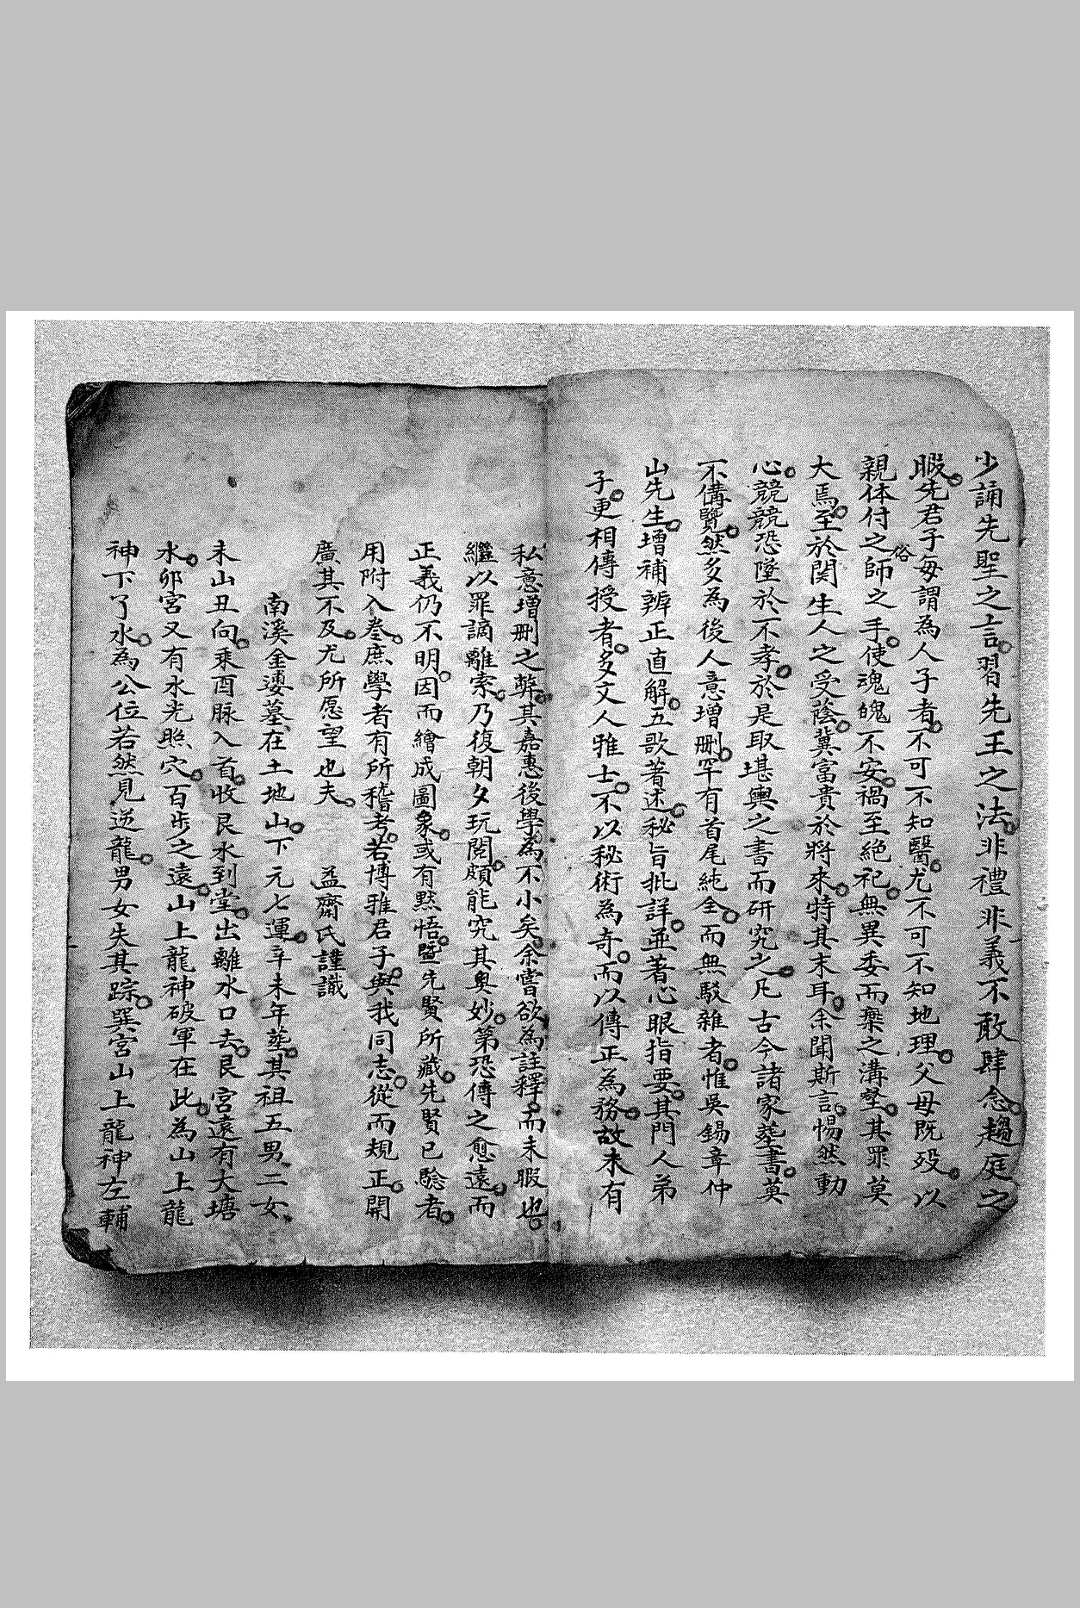 少誦先聖之言習先王之法非禮非義不敢肆念趨庭之
暇先君子每謂為人子者不可不知醫尤不可不知地理父母既歿以
親体付之俗師之手使魂魄不安禍至絶祀無異委而棄之溝壑其罪莫
大焉至於関生人之受蔭冀富貴於將來特其末耳余聞斯言惕然動
心兢兢恐墜於不孝於是取堪輿之書而研究之凡古今諸家塟書莫
不俻覽然多為後人意增刪罕有首尾純全而無駁雜者惟吳錫章仲
山先生增補辨正直解五歌著述秘旨批詳並著心眼指要其門人弟
子更相傳授者多文人雅士不以秘術為奇而以傳正為務故未有
私意增刪之弊其嘉惠後學為不小矣余嘗欲為註釋而未暇也
繼以罪謫離索乃復朝夕玩閲頗能究其奧妙第恐傳之愈遠而
正義仍不明因而繪成圖象或有黙悟暨先賢所藏先賢已騐者
用附入卷庶學者有所稽考若博雅君子與我同志從而規正開
廣其不及尤所愿望也夫 益齋氏謹識
南溪金墓在土地山下元七運辛未年塟其祖五男二女
未山丑向乘酉脉入首收艮水到堂出離水口去艮宮遠有大塘
水卯宮又有水光照穴百步之遠山上龍神破軍在此為山上龍
神下了水為公位若然見逆龍男女失其踪巽宮山上龍神左輔